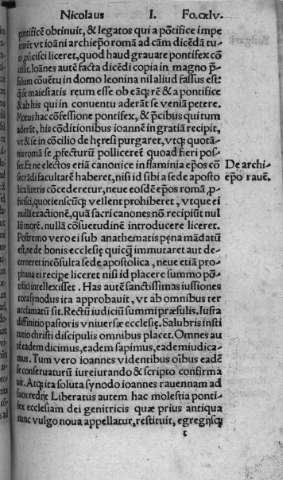 Nicolaus I. Fo.cxlv.
pontificē obtinuit, & legatos qui a pōtifice impe
rent vt ioāni archiep̄o romā ad cām dicēdā tu
to p̄ficisci liceret, quod haud grauate pontifex cō
uit, ioānes autē facta dicēdi copia in magno p̄
sulum cōuētu in domo leonina nil aliud fassus est:
q̄ se maiestatis reum esse ob eāq̄ rē & a pontifice
& ab his qui in conuentu aderāt se veniā petere.
Motus hac cōfessione pontifex, & p̄cibus qui tum
aderāt, his cōditionibus ioannē in gratiā recipit,
vt & se in cōcilio de hęresi purgaret, vtq̄ quotā-
nis romā se p̄fecturū polliceret̄ quoad fieri pos
set. Et ne electos etiā canonice in flaminia ep̄os cō De archi-
secrādi facultatē haberet, nisi id sibi a sede aposto ep̄o rauē.
lica literis cōcederetur, neue eosdē ep̄os romā p̄
ficisci, quotiēscūq̄ vellent prohiberet, vtque ei
nulla exactionē, quā sacri canones nō recipiūt nul
lū morē, nullā cōsuetudinē introducere liceret.
Postremo vero ei sub anathematis pęna mādatū
est, ne de bonis ecclesię quicq̄ immutaret aut de-
meret incōsulta sede apostolica, neue etiā pro-
phana ei recipe liceret nisi id placere summo pō-
tifici intellexisset. Has autē sanctissimas iussiones
tota synodus ita approbauit, vt ab omnibus ter
acclamatū sit. Rectū iudiciū summi pręsulis, Iusta
diffinitio pastoris vniuersę ecclesię. Salubris insti
tutio christi discipulis omnibus placet. Omnes au
tē eadem dicimus, eadem sapimus, eadem iudica-
mus. Tum vero ioannes videntibus oībus eadē
se conseruaturū iureiurando & scripto confirma
uit. Atq̄ ita soluta synodo ioannes rauennam ad
suos redit. Liberatus autem hac molestia ponti-
fex ecclesiam dei genitricis quæ prius antiqua
nunc vulgo noua appellatur, restituit, egregiisq̄